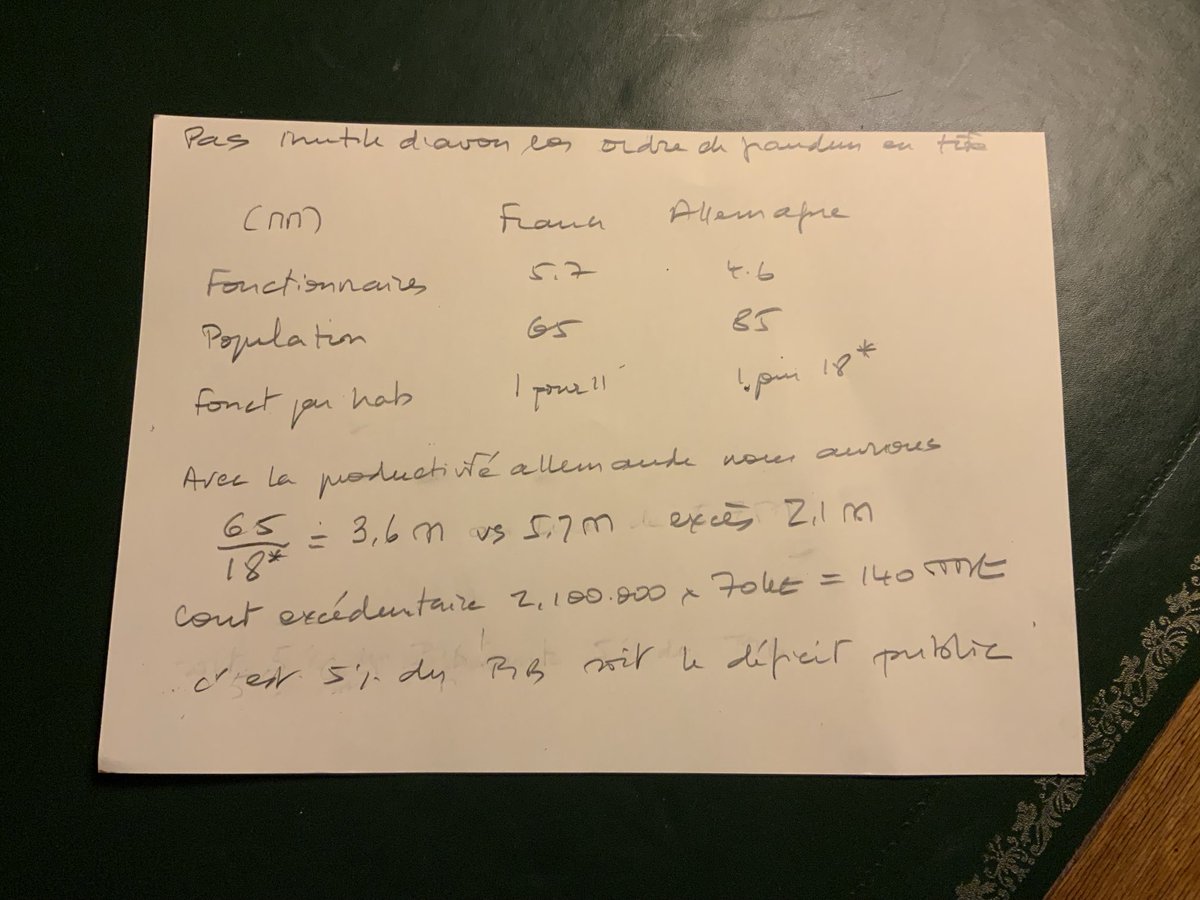 Pas inutile d'avoir les ordre de grandeur en tête
(MM) France Allemagne
Fonctionnaires 5.7 4.6
Population 65 85
Fonct par hab 1 pour 11 1 pour 18*
Avec la productivité allemande nous aurions
65/18* = 3,6 M vs 5,7 M excès 2,1 M
Cout excédentaire 2,100.000 x 70k€ = 140 MM€
c'est 5% du PIB soit le déficit public